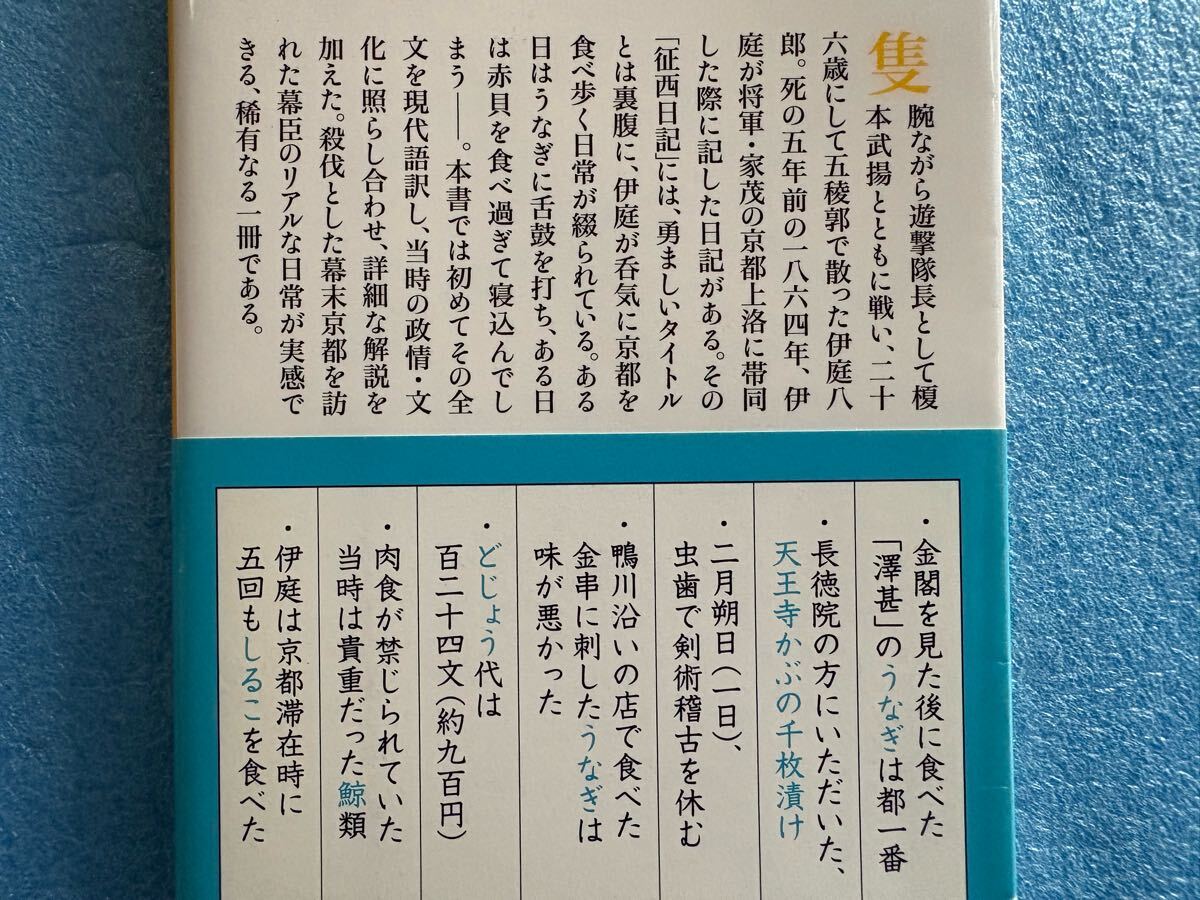 隻腕ながら遊撃隊長として榎
本武揚とともに戦い、二十
六歳にして五稜郭で散った伊庭八
郎。死の五年前の一八六四年、伊
庭が将軍・家茂の京都上洛に帯同
した際に記した日記がある。その
「征西日記」には、勇ましいタイトル
とは裏腹に、伊庭が呑気に京都を
食べ歩く日常が綴られている。ある
日はうなぎに舌鼓を打ち、ある日
は赤貝を食べ過ぎて寝込んでし
まう――。本書では初めてその全
文を現代語訳し、当時の政情・文
化に照らし合わせ、詳細な解説を
加えた。殺伐とした幕末京都を訪
れた幕臣のリアルな日常が実感で
きる、稀有なる一冊である。
・金閣を見た後に食べた
「澤甚」のうなぎは都一番
・長徳院の方にいただいた、
天王寺かぶの千枚漬け
・二月朔日(一日)、
虫歯で剣術稽古を休む
・鴨川沿いの店で食べた
金串に刺したうなぎは
味が悪かった
・どじょう代は
百二十四文(約九百円)
・肉食が禁じられていた
当時は貴重だった鯨類
・伊庭は京都滞在時に
五回もしるこを食べた